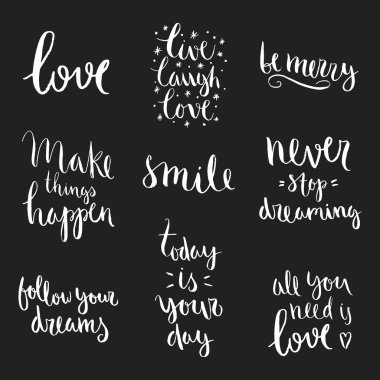 love
live
laugh
love
be merry
Make
things
happen
smile
never
stop
dreaming
follow your
dreams
today
is
your
day
all you
need is
love